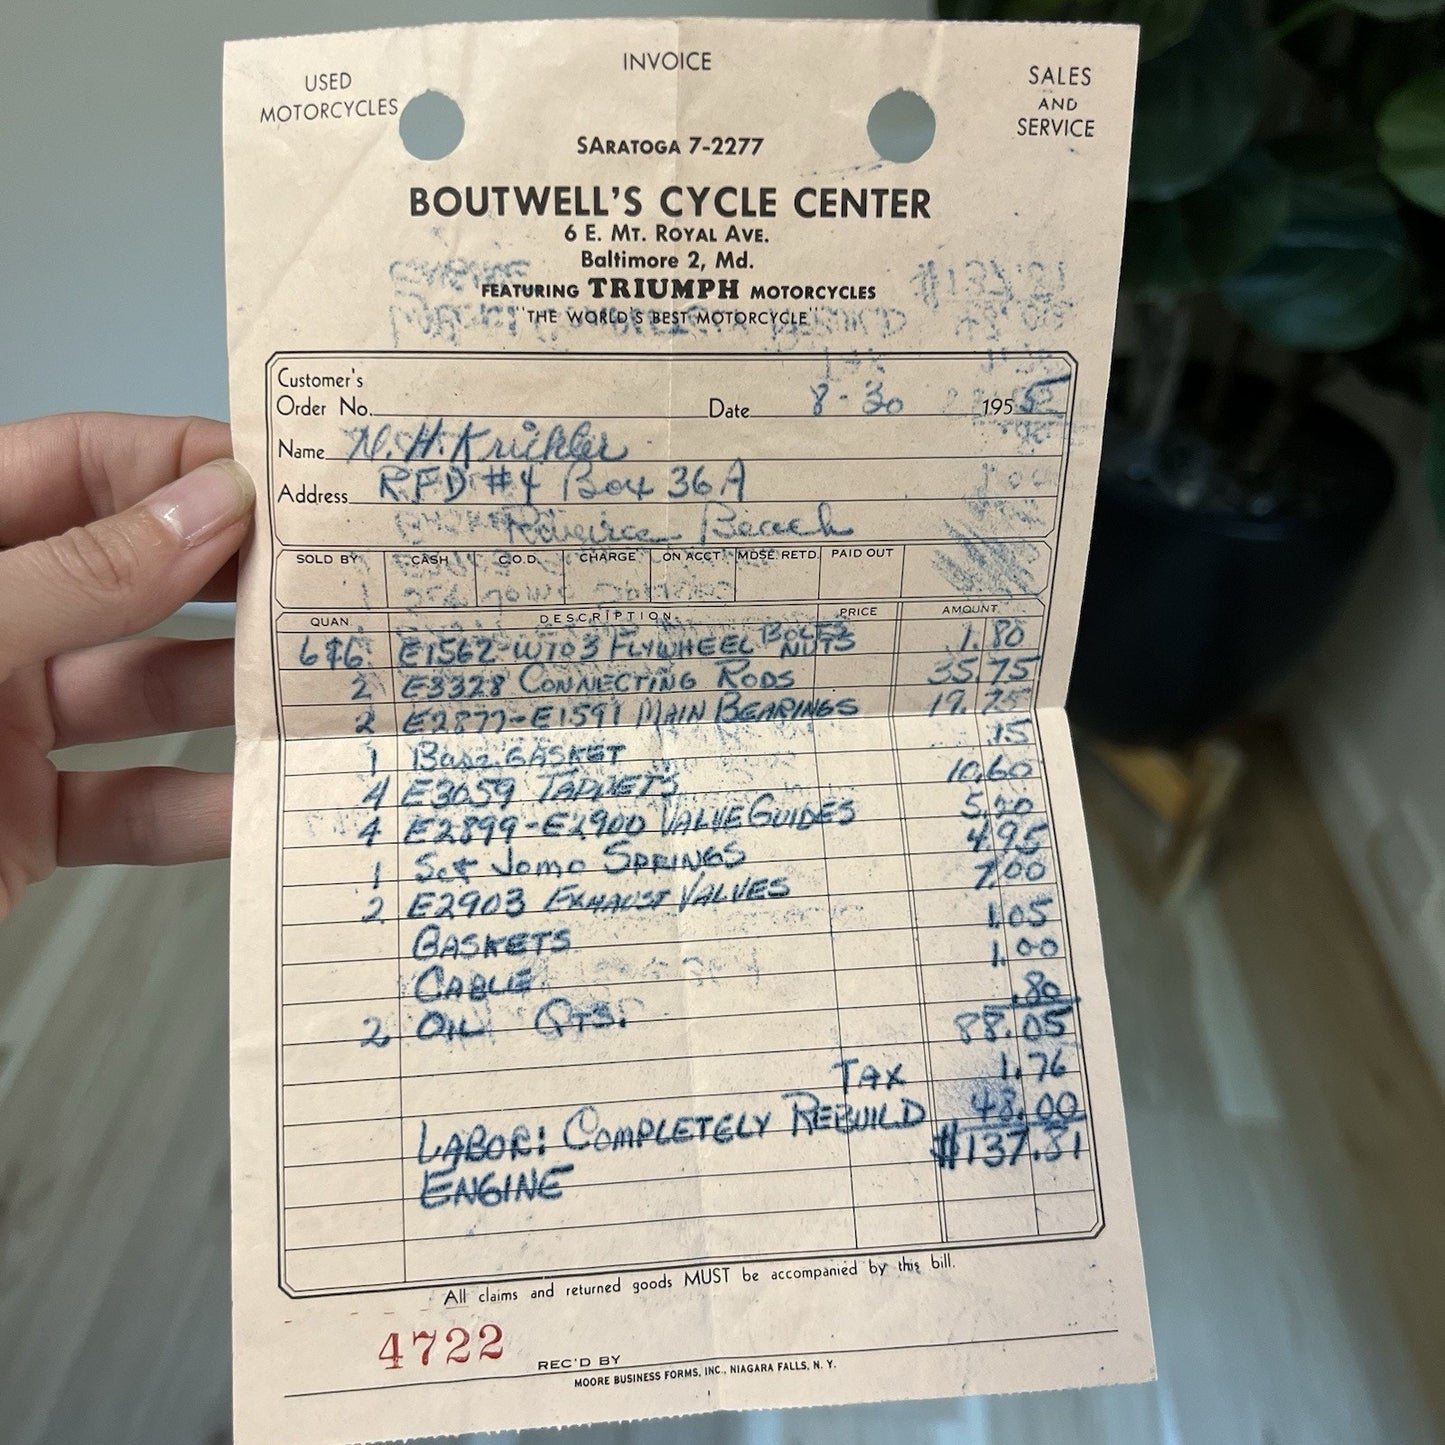 INVOICE
USED
MOTORCYCLES
SALES
AND
SERVICE
SARATOGA 7-2277
BOUTWELL'S CYCLE CENTER
6 E. MT. ROYAL AVE.
Baltimore 2, Md.
FEATURING TRIUMPH MOTORCYCLES
"THE WORLD'S BEST MOTORCYCLE"
Customer's
Order No. Date 8-30 1955
Name H. Krichler
Address RFD #4 Box 36A
Beach
SOLD BY CASH C.O.D. CHARGE ON ACCT. MDSE. RETD. PAID OUT
QUAN. DESCRIPTION PRICE AMOUNT
6 & 6 E1562-WT03 FLYWHEEL BOLTS NUTS 1.80
2 E3328 CONNECTING RODS 35.75
2 E2877-E1591 MAIN BEARINGS 19.75
1 Base GASKET .15
4 E3059 TAPPETS 10.60
4 E2899-E2900 VALVE GUIDES 5.20
1 Set Jomo SPRINGS 4.95
2 E2903 EXHAUST VALVES 7.00
GASKETS 1.05
CABLE 1.00
2 OIL QTS. .80
88.05
TAX 1.76
LABOR: COMPLETELY REBUILD 48.00
ENGINE $137.81
All claims and returned goods MUST be accompanied by this bill.
4722
REC'D BY
MOORE BUSINESS FORMS, INC., NIAGARA FALLS, N. Y.